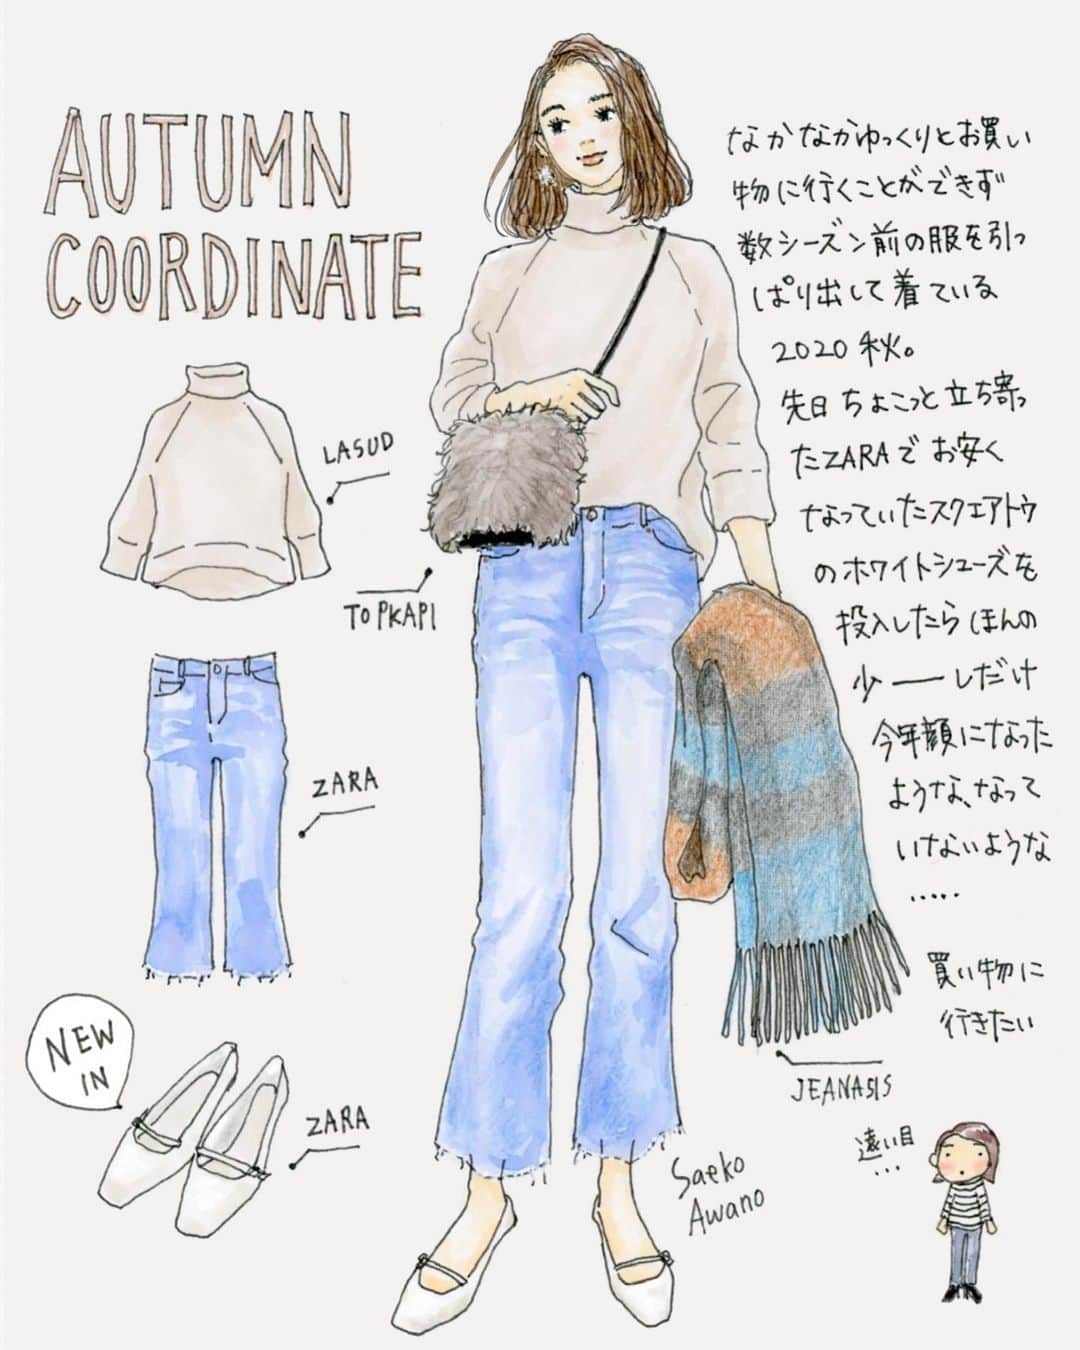 AUTUMN
COORDINATE
LASUD
TOPKAPI
ZARA
NEW
IN
ZARA
なかなかゆっくりとお買い
物に行くことができず
数シーズン前の服を引っ
ぱり出して着ている
2020秋。
先日ちょこっと立ち寄っ
たZARAでお安く
なっていたスクエアトウ
のホワイトシューズを
投入したらほんの
少——しだけ
今年顔になった
ような、なって
いないような
……
買い物に
行きたい
JEANASIS
遠い目
…
Saeko
Awano